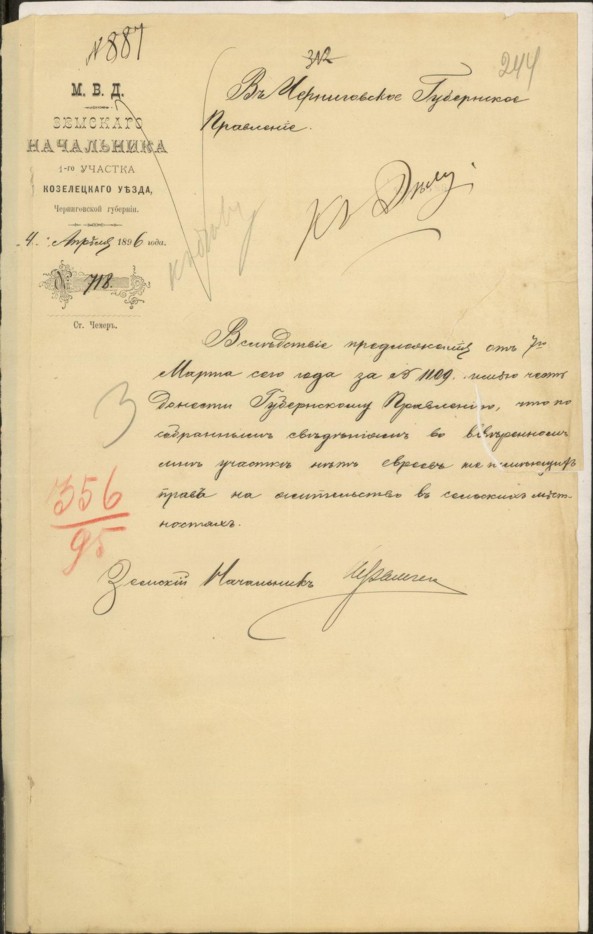 №887
312
244
М. В. Д.
ЗЕМСКАГО
НАЧАЛЬНИКА
1-го УЧАСТКА
КОЗЕЛЕЦКАГО УѢЗДА,
Черниговской губерніи.
4 Апрѣля 1896 года.
№ 718.
Ст. Чемеръ.
Въ Черниговское Губернское
Правленіе.
Къ Дѣлу
Вслѣдствіе предложенія отъ 7го
Марта сего года за № 1109. имѣю честь
донести Губернскому Правленію, что по
собраннымъ свѣдѣніямъ во ввѣренномъ
мнѣ участкѣ нѣтъ евреевъ не имѣющихъ
права на жительство въ сельскихъ мѣст-
ностяхъ.
3
356
95
Земскій Начальникъ